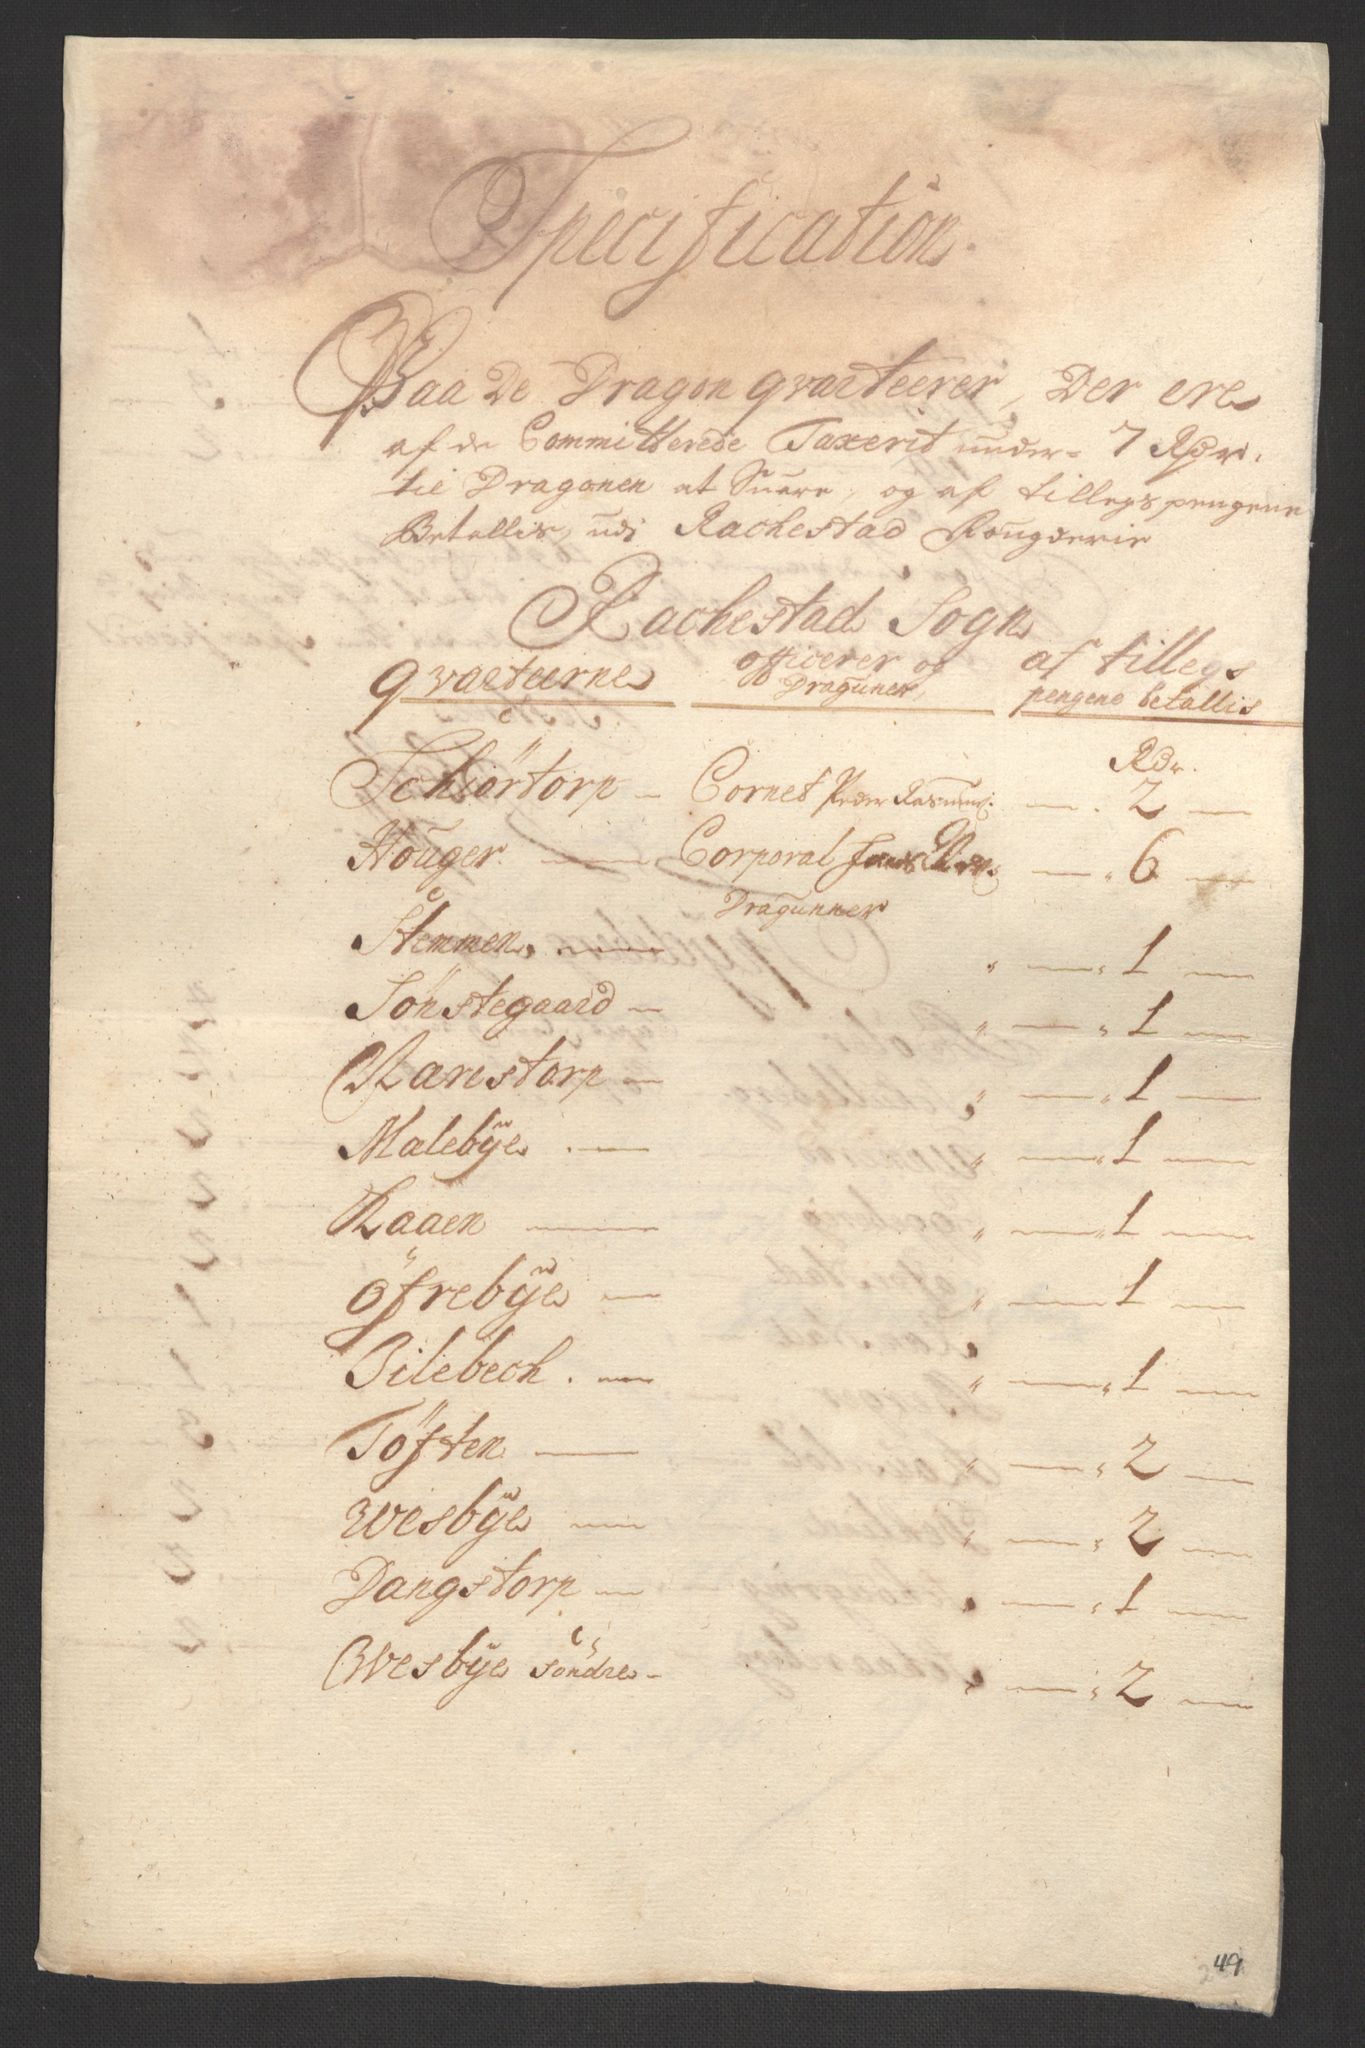 Specification
Paa De Dragon qvarteerer, Der ere
af de Committerede Taxerit under 7 Rdr.
til Dragonen at Suare, og af tillegspengene
Betallis, udi Rachestad Fougderie
Rachestad Sogn
qvarteerne officerer og af tillegs
Dragüner, pengene betallis
Rdr.
Schiörtorp Cornet Peder Rasmus: 2
Houger Corporal 6
Dragunner
Stemmen " " 1
Sönstegaard " " 1
Rarestorp " " 1
Malebÿe " " 1
Raaen " " 1
Öfrebÿe " " 1
Bilebech " " 1
Töften " " 2
Wesbÿe " " 2
Dangstorp " " 1
Wesbÿe Söndre " " 2
49